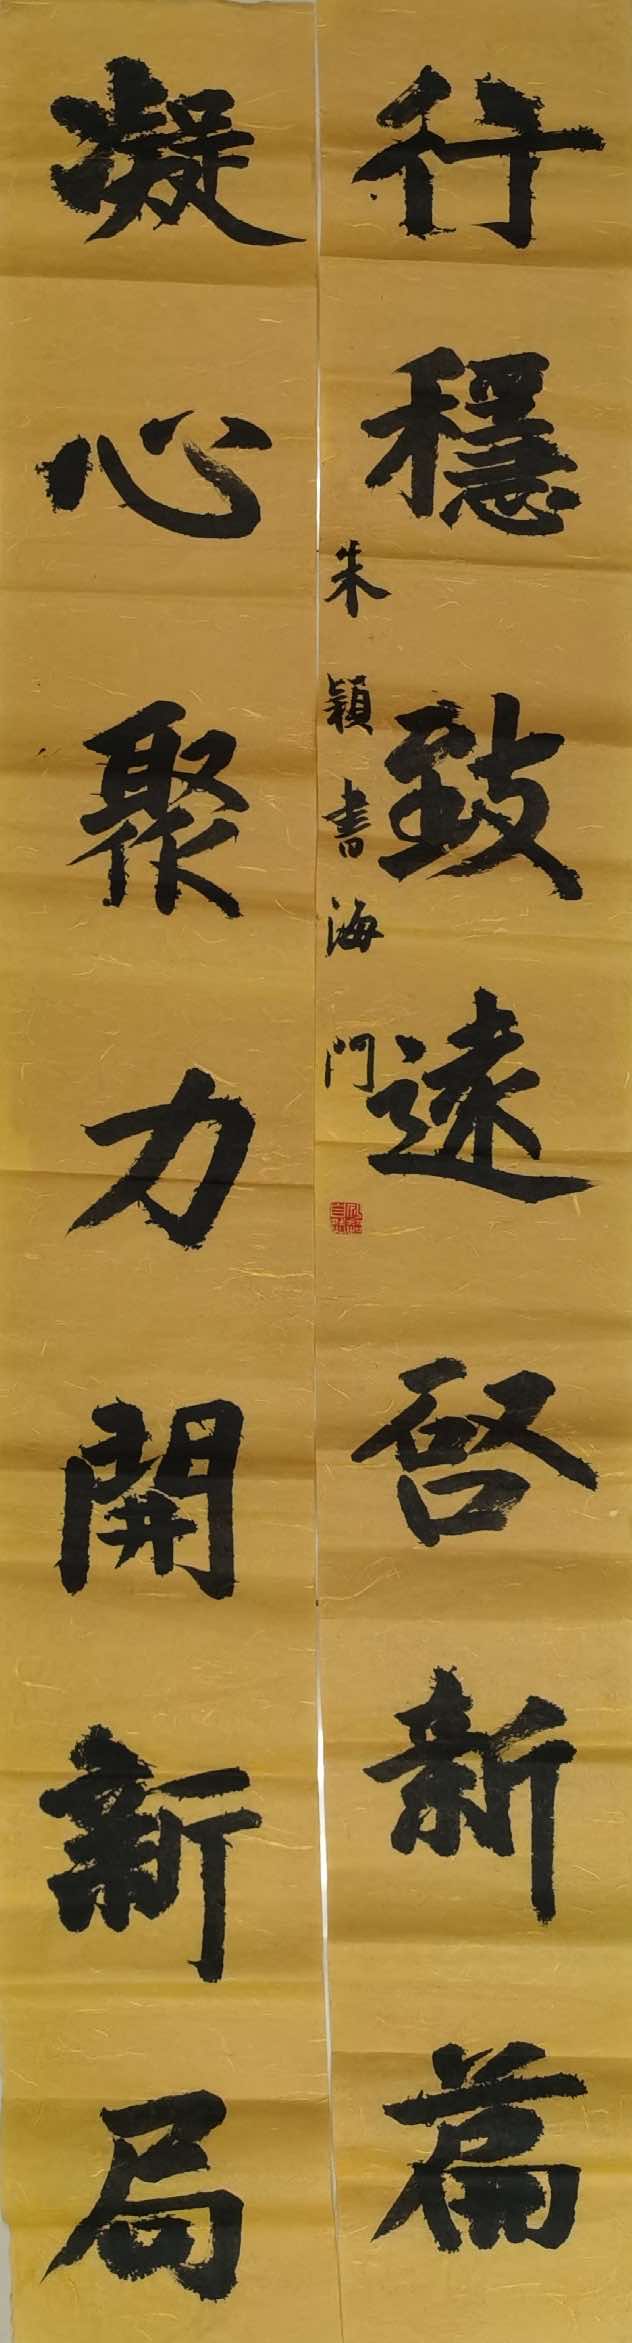 行穩致遠啓新篇
朱穎書海門
凝心聚力開新局